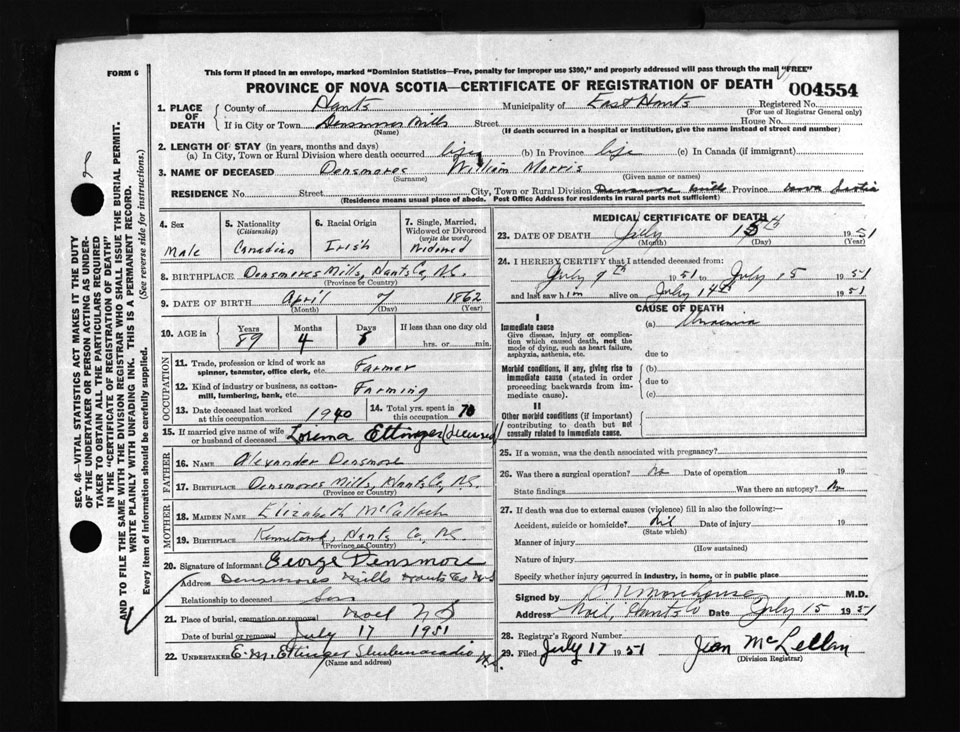 This form if placed in an envelope, marked "Dominion Statistics—Free, penalty for improper use $300," and properly addressed will pass through the mail "FREE"
FORM 6
PROVINCE OF NOVA SCOTIA—CERTIFICATE OF REGISTRATION OF DEATH
004554
1. PLACE OF DEATH County of Hants Municipality of East Hants Registered No.
(For use of Registrar General only)
If in City or Town Densmores Mills Street House No.
(Name) (If death occurred in a hospital or institution, give the name instead of street and number)
2. LENGTH OF STAY (in years, months and days)
(a) In City, Town or Rural Division where death occurred life (b) In Province life (c) In Canada (if immigrant)
3. NAME OF DECEASED Densmore William Morris
(Surname) (Given name or names)
RESIDENCE No. Street City, Town or Rural Division Densmore Mills Province Nova Scotia
(Residence means usual place of abode. Post Office Address for residents in rural parts not sufficient)
4. Sex Male
5. Nationality (Citizenship) Canadian
6. Racial Origin Irish
7. Single, Married, Widowed or Divorced (write the word) Widowed
8. BIRTHPLACE Densmores Mills, Hants Co, N.S.
(Province or Country)
9. DATE OF BIRTH April 7 1862
(Month) (Day) (Year)
10. AGE in Years 89 Months 4 Days 8 If less than one day old
hrs. or min.
OCCUPATION
11. Trade, profession or kind of work as spinner, teamster, office clerk, etc. Farmer
12. Kind of industry or business, as cotton-mill, lumbering, bank, etc. Farming
13. Date deceased last worked at this occupation 1940
14. Total yrs. spent in this occupation 70
15. If married give name of wife or husband of deceased Lorena Ettinger (deceased)
FATHER
16. NAME Alexander Densmore
17. BIRTHPLACE Densmores Mills, Hants Co, N.S.
(Province or Country)
MOTHER
18. MAIDEN NAME Elizabeth McCulloch
19. BIRTHPLACE Hants Co, N.S.
(Province or Country)
20. Signature of informant George Densmore
Address Densmores Mills Hants Co N.S
Relationship to deceased Son
21. Place of burial, cremation or removal Noel N S
Date of burial or removal July 17 1951
22. UNDERTAKER E. M. Ettinger Shubenacadie N.S.
(Name and address)
MEDICAL CERTIFICATE OF DEATH
23. DATE OF DEATH July 15th 1951
(Month) (Day) (Year)
24. I HEREBY CERTIFY that I attended deceased from:
July 9th 1951 to July 15 1951
and last saw him alive on July 14th 1951
CAUSE OF DEATH
I
Immediate cause
Give disease, injury or complication which caused death, not the mode of dying, such as heart failure, asphyxia, asthenia, etc.
(a) Uraemia
due to
Morbid conditions, if any, giving rise to immediate cause (stated in order proceeding backwards from immediate cause).
(b)
due to
(c)
II
Other morbid conditions (if important) contributing to death but not causally related to immediate cause.
25. If a woman, was the death associated with pregnancy?
26. Was there a surgical operation? No Date of operation 19
State findings Was there an autopsy? No
27. If death was due to external causes (violence) fill in also the following:
Accident, suicide or homicide? Nil Date of injury 19
(State which)
Manner of injury
(How sustained)
Nature of injury
Specify whether injury occurred in industry, in home, or in public place
Signed by Morehouse M.D.
Address Noel, Hants Co Date July 15 1951
28. Registrar's Record Number
29. Filed July 17 1951 Jean McLellan
(Division Registrar)
SEC. 46—VITAL STATISTICS ACT MAKES IT THE DUTY
OF THE UNDERTAKER OR PERSON ACTING AS UNDER-
TAKER TO OBTAIN ALL THE PARTICULARS REQUIRED
IN THE "CERTIFICATE OF REGISTRATION OF DEATH"
AND TO FILE THE SAME WITH THE DIVISION REGISTRAR WHO SHALL ISSUE THE BURIAL PERMIT.
WRITE PLAINLY WITH UNFADING INK. THIS IS A PERMANENT RECORD.
Every item of information should be carefully supplied. (See reverse side for instructions.)